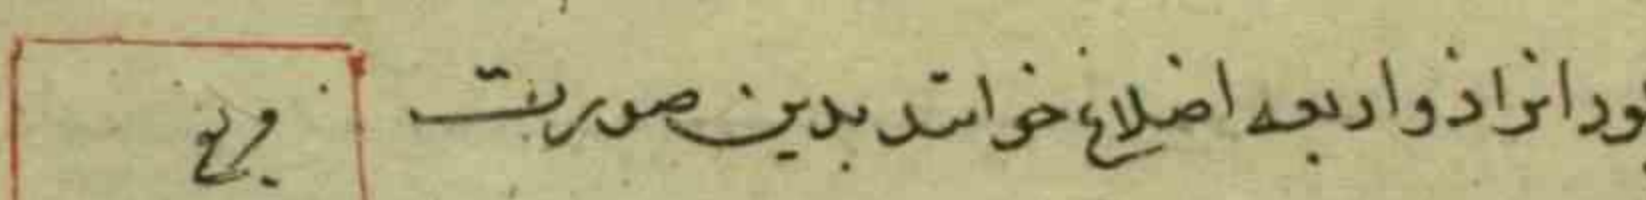 بود انرا ذو اربعه اضلاع خوانند بدین صورت
مربع